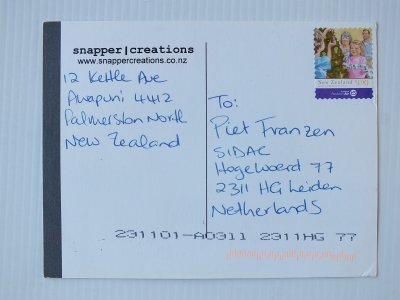 snapper|creations
www.snappercreations.co.nz
12 Kettle Ave
Awapuni 4412
Palmerston North
New Zealand
To:
Piet Franzen
SIDAC
Hogewoerd 77
2311 HG Leiden
Netherlands
New Zealand
231101-A0311 2311HG 77